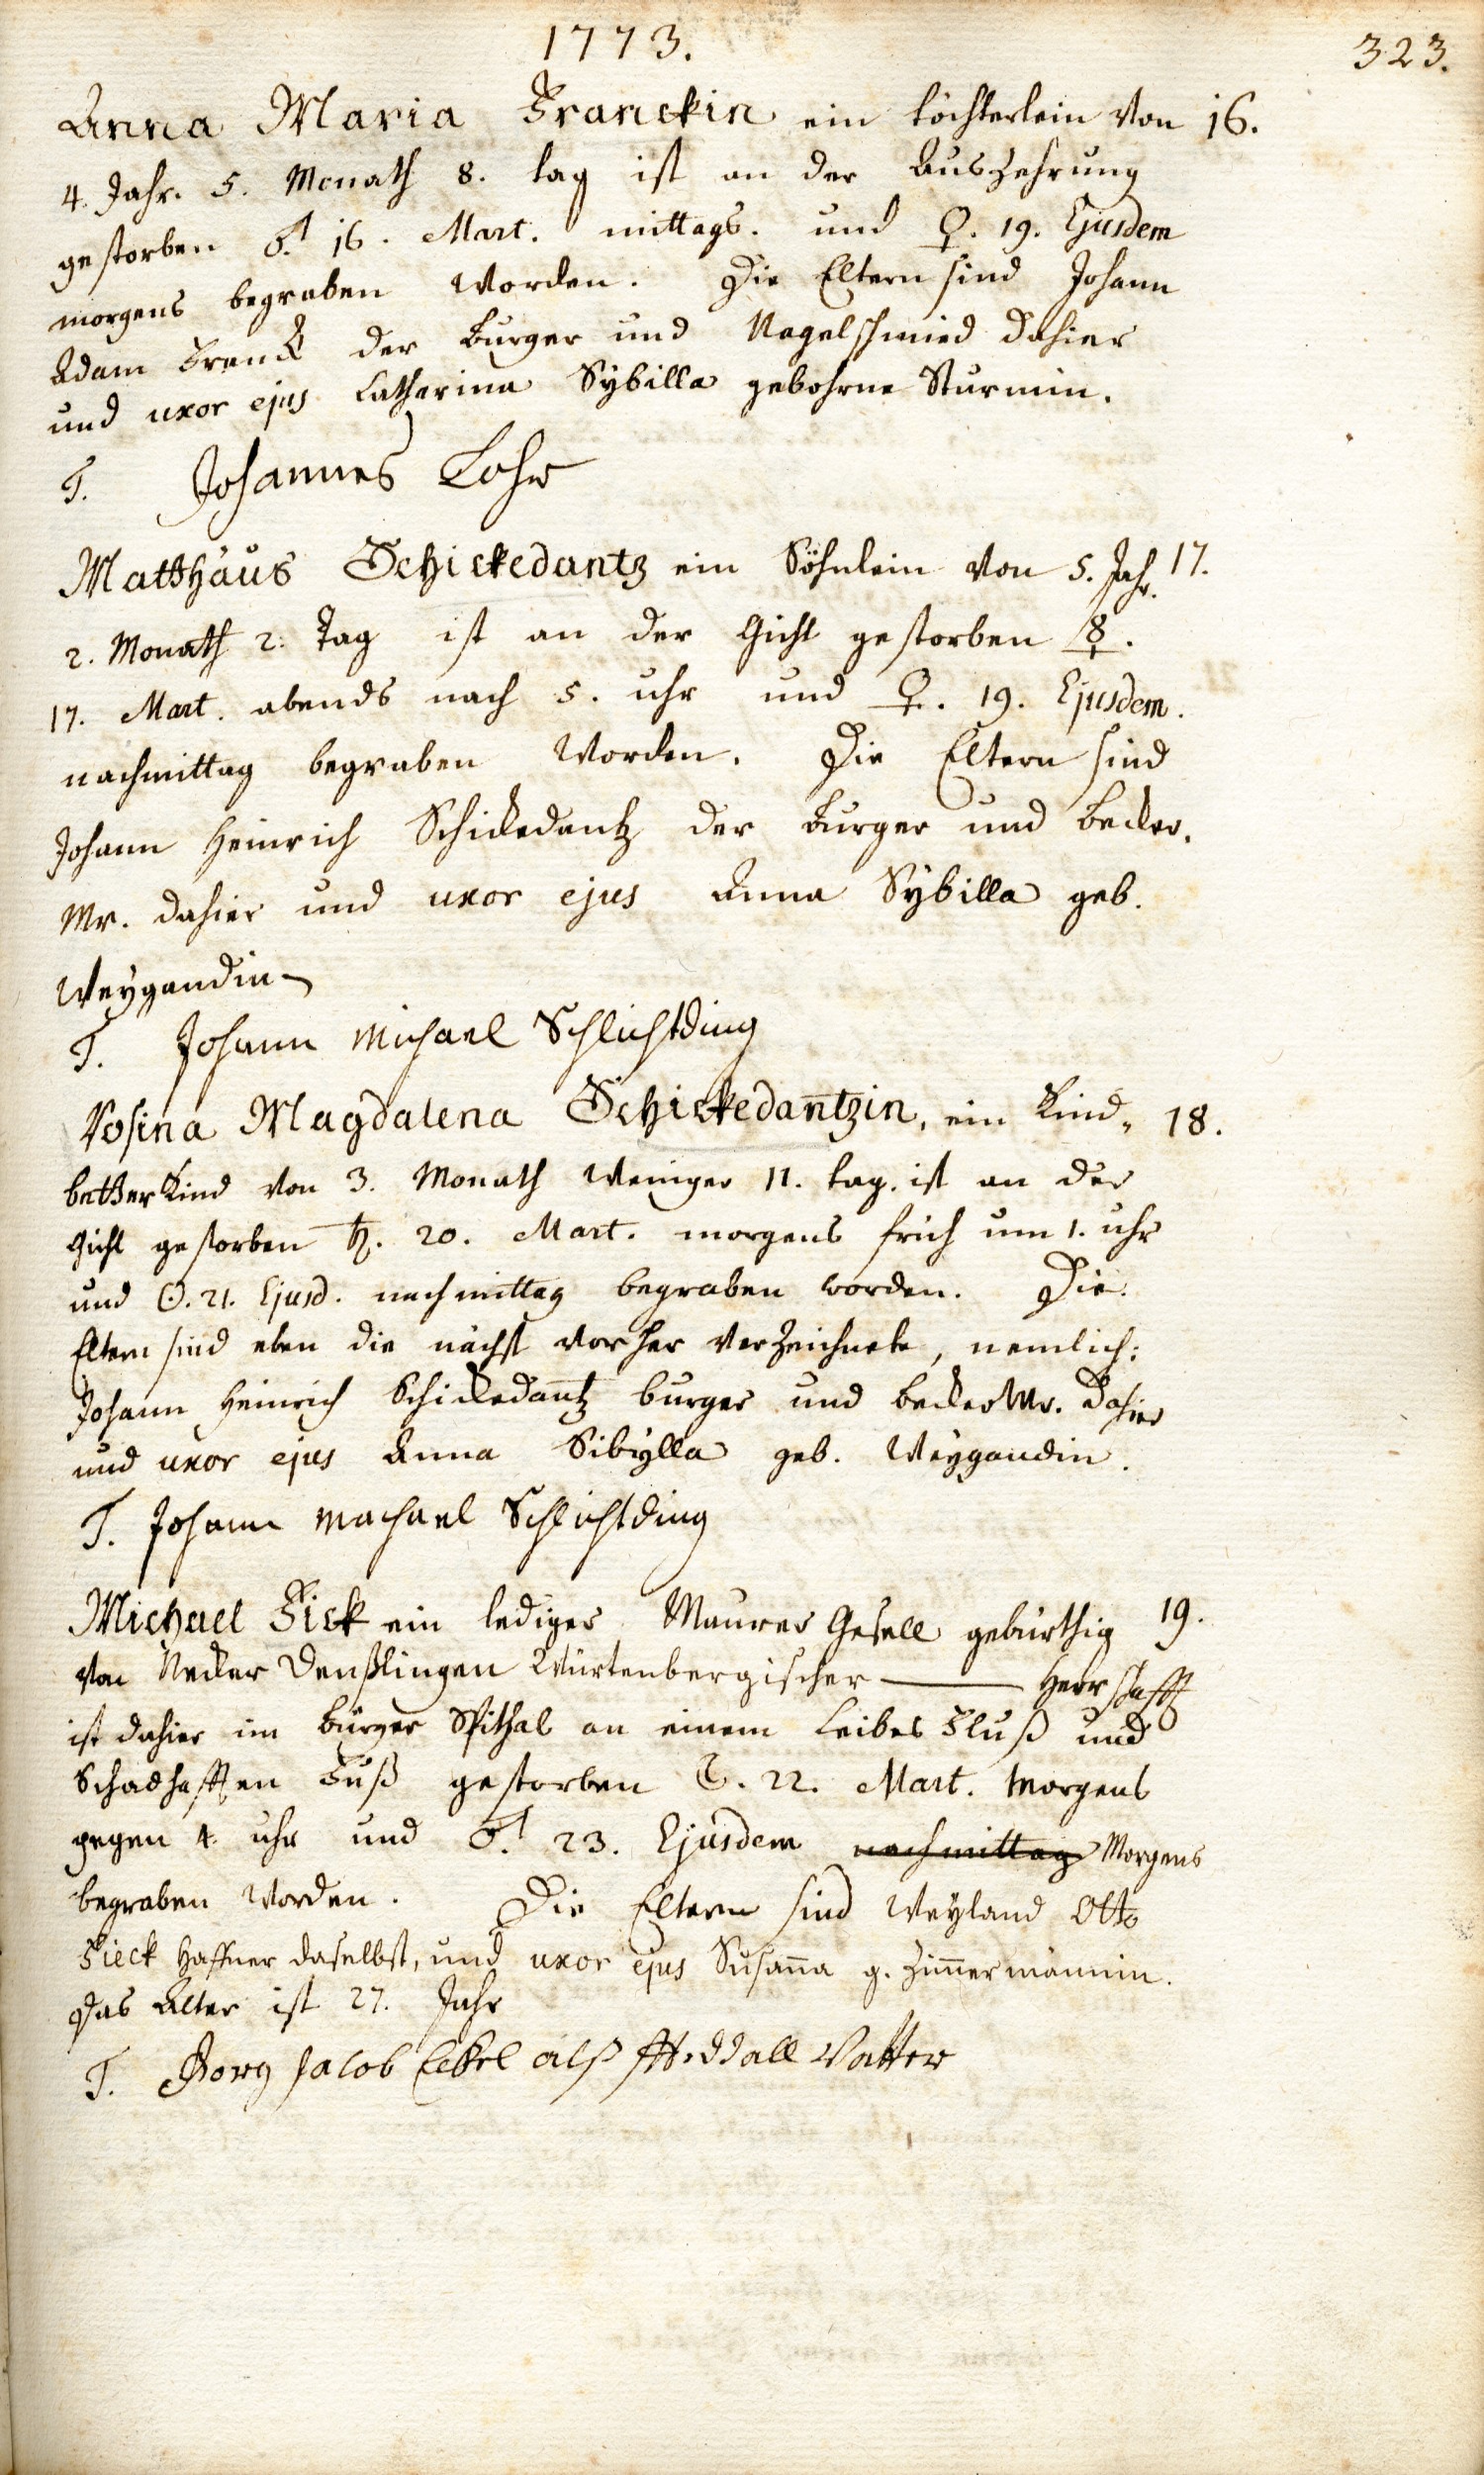 1773.
323.
Anna Maria Franckin ein töchterlein von 16.
4. Jahr. 5. Monath 8. tag ist an der Auszehrung
gestorben ♂. 16. Mart. mittags. und ♀. 19. Ejusdem
morgens begraben worden. Die Eltern sind Johann
Adam Franck der Burger und Nagelschmied dahier
und uxor ejus Catharina Sybilla gebohrne Sturmin.
T. Johannes Lohr
Matthäus Schickedantz ein Söhnlein von 5. Jahr. 17.
2. Monath 2. Tag ist an der Gicht gestorben ☿.
17. Mart. abends nach 5. uhr und ♀. 19. Ejusdem.
nachmittag begraben worden. Die Eltern sind
Johann Heinrich Schickedantz der Burger und Becker.
Mr. dahier und uxor ejus Anna Sybilla geb.
Weygandin
T. Johann Michael Schlichtding
Rosina Magdalena Schickedan̄tzin, ein Kind„ 18.
betterkind von 3. Monath weniger 11. tag. ist an der
Gicht gestorben ♄. 20. Mart. morgens früh um 1. uhr
und ☉. 21. Ejusd. nachmittag begraben worden. Die
Eltern sind eben die nächst vorher verzeichnete, nemlich:
Johann Heinrich Schickedan̄tz burger und becker Mr. dahier
und uxor ejus Anna Sibylla geb. Weygandin.
T. Johann Machael Schlichtding
Michael Fick ein lediger Maurer Gesell gebürthig 19.
von Necker Denßlingen Würtenbergischer — Herrschafft
ist dahier im bürger Spithal an einem Leibes Fluß und
Schadhafften Fuß gestorben ☾. 22. Mart. Morgens
gegen 4. uhr und ♂. 23. Ejusdem nachmittag Morgens
begraben worden. Die Eltern sind Weyland Otto
Fieck Haffner daselbst, und uxor ejus Susan̄a g. Zim̄ermännin.
Das Alter ist 27. Jahr
T. Jacob Eckel alß Vatter